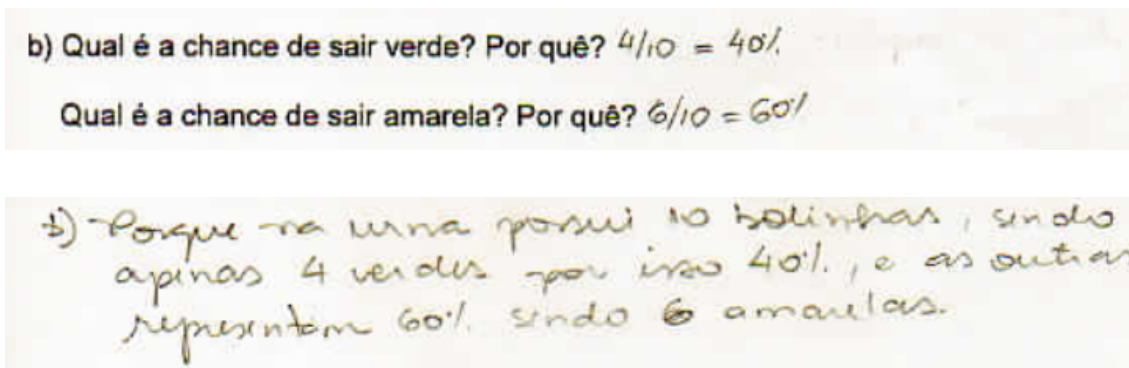 b) Qual é a chance de sair verde? Por quê? 4/10 = 40%
Qual é a chance de sair amarela? Por quê? 6/10 = 60%
b) Porque na urna possui 10 bolinhas, sendo
apenas 4 verdes por isso 40%, e as outras
representam 60% sendo 6 amarelas.